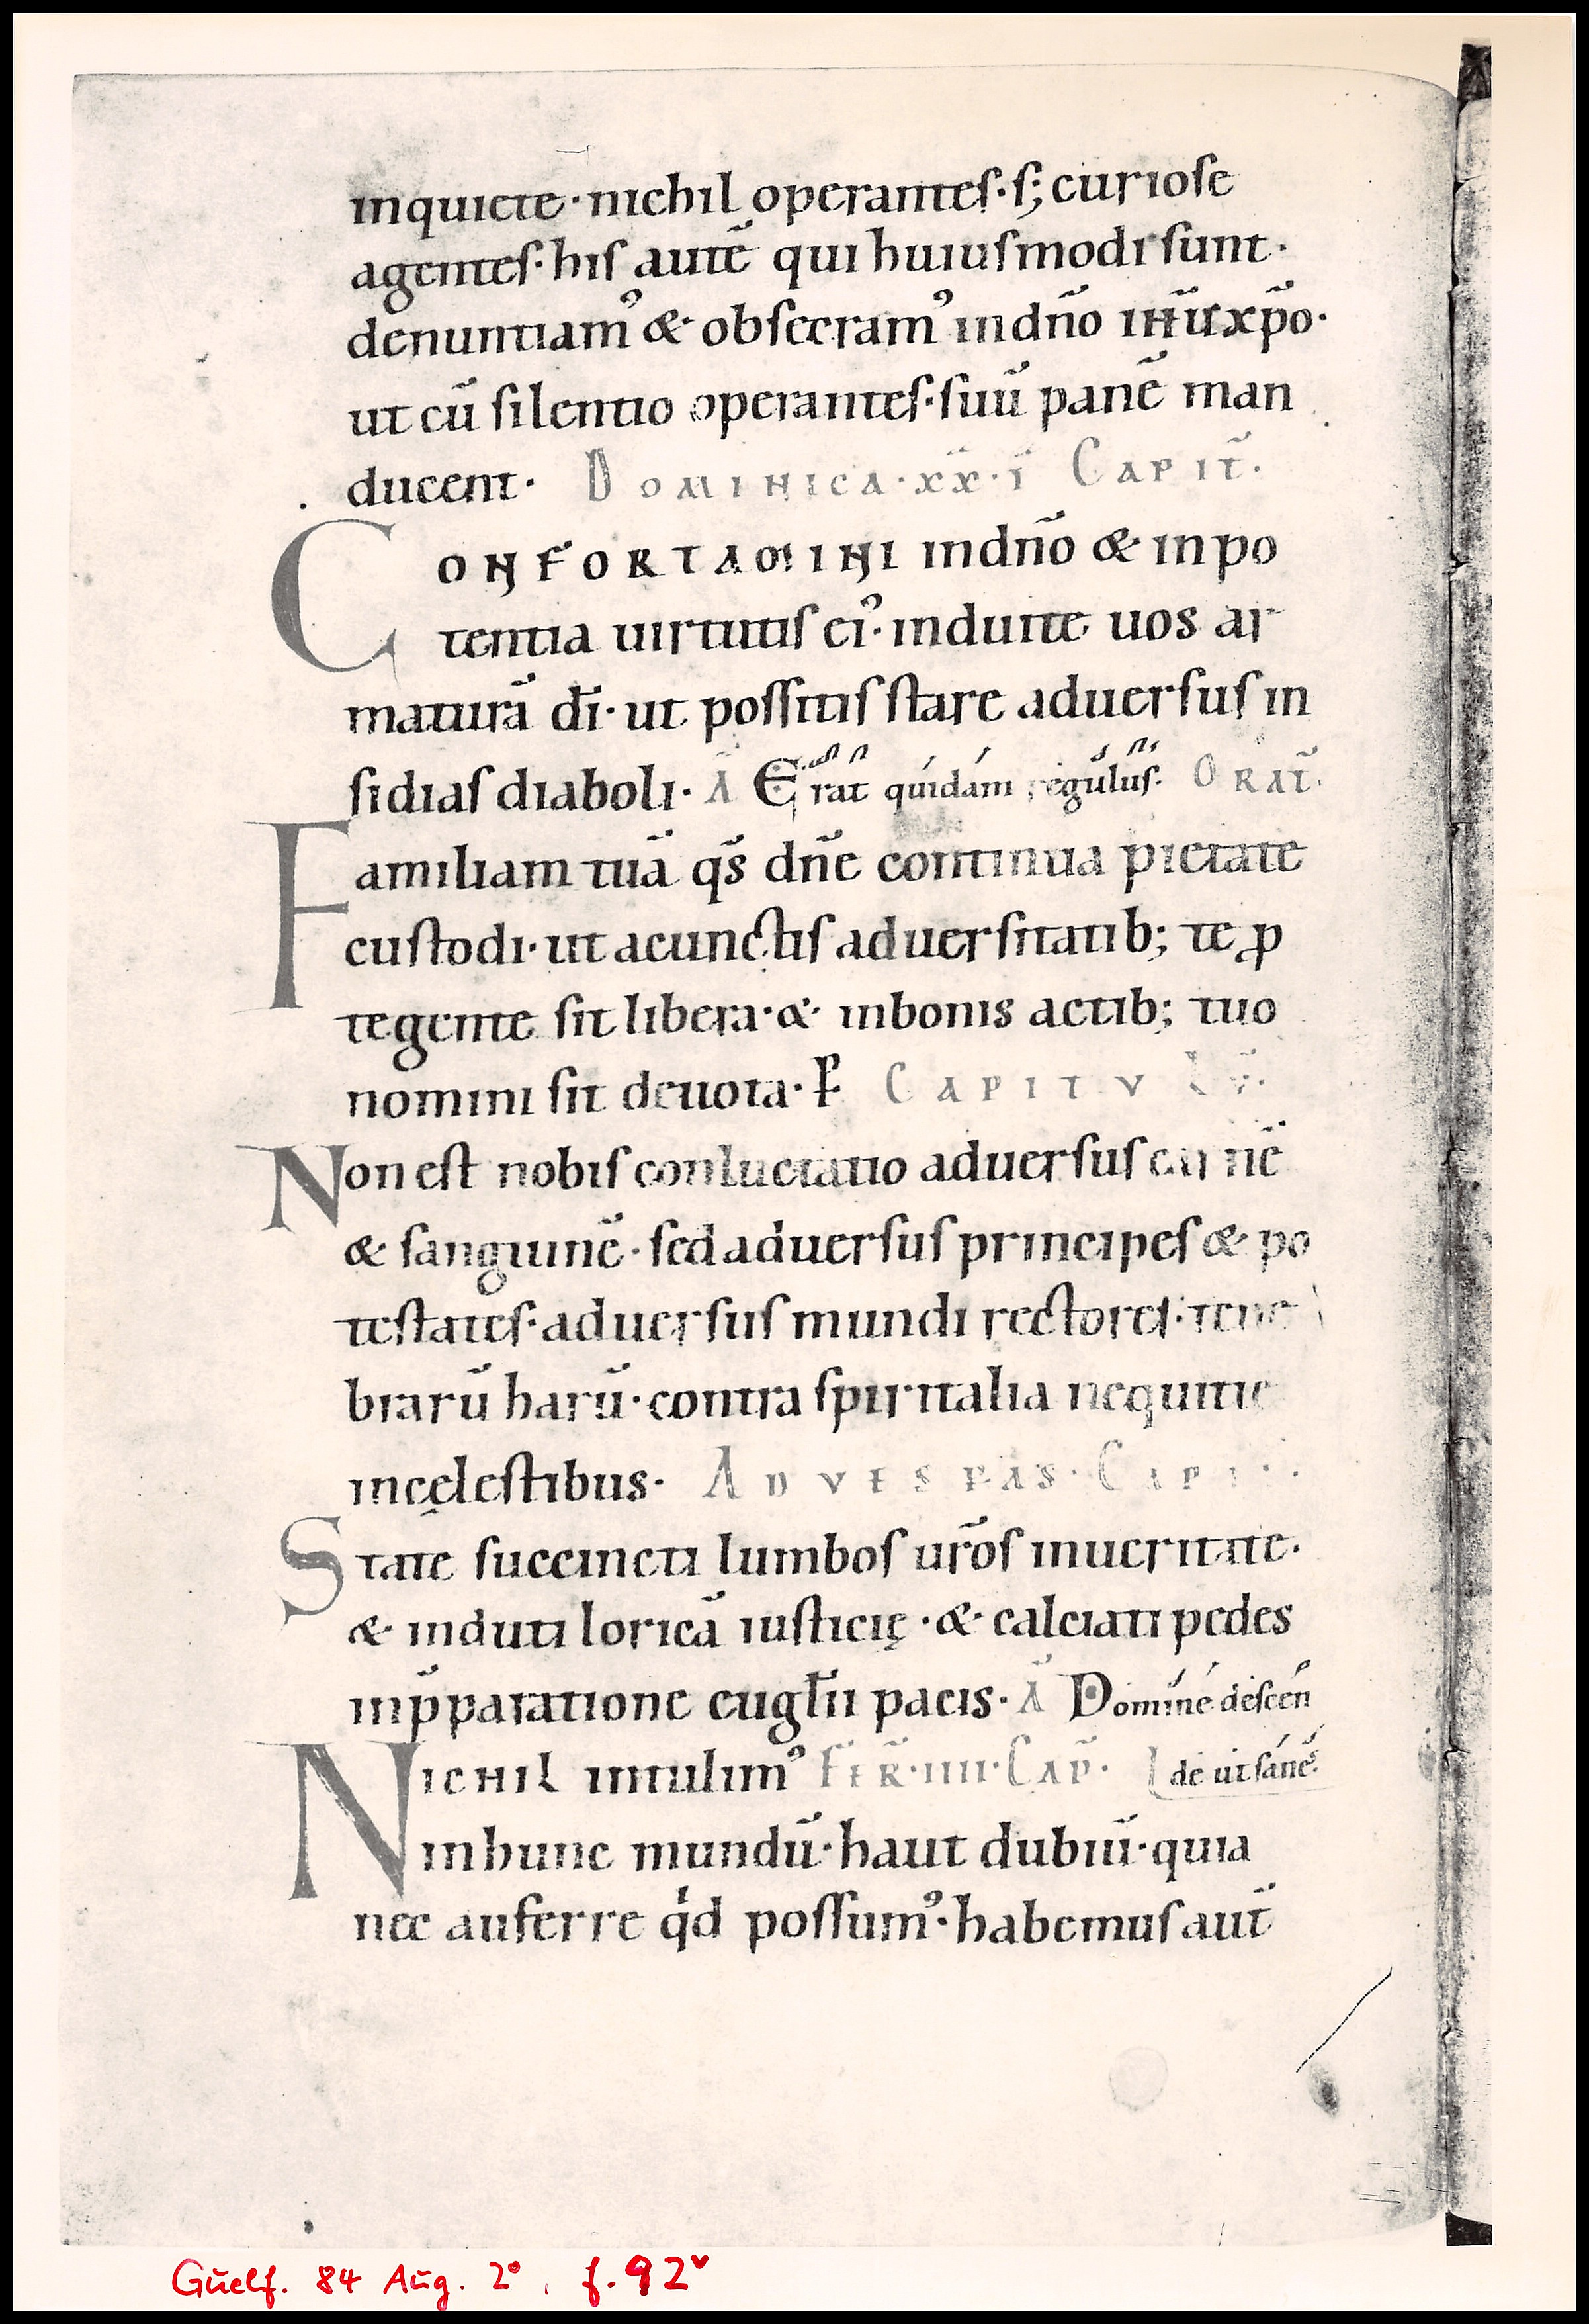 inquiete· nichil operantes· s; curiose
agentes· his autē qui huiusmodi sunt·
denuntiam᾽ & obsecram᾽ in dn̄o ihū xp̄o·
ut cū silentio operantes· suū panē man
ducent· DOMINICA·XX·I CAPIT̄·
CONFORTAMINI in dn̄o & in po
tentia uirtutis ei᾽· induite uos ar
maturā dī· ut possitis stare aduersus in
sidias diaboli· Ā Erat quidam regulus· ORAT̄·
Familiam tuā qs̄ dn̄e continua pietate
custodi· ut a cunctis aduersitatib; te ꝓ
tegente sit libera· & in bonis actib; tuo
nomini sit deuota· P̄ CAPITVL̄
Non est nobis conluctatio aduersus carnē
& sanguinē· sed aduersus principes & po
testates· aduersus mundi rectores· tene
brarū harū· contra spiritalia nequitie
in cęlestibus· AD VESPAS· CAPI
State succincti lumbos ur̄os in ueritate·
& induti loricā iusticię· & calciati pedes
in p̄paratione eugl̄ii pacis· Ā Domine descen
NICHIL intulim᾽ FER̄·IIII·CAP̄· de ut sane᾽·
in hunc mundū· haut dubiū· quia
nec auferre qd possum᾽· habemus aut̄
Guelf. 84 Aug. 2°, f. 92ᵛ